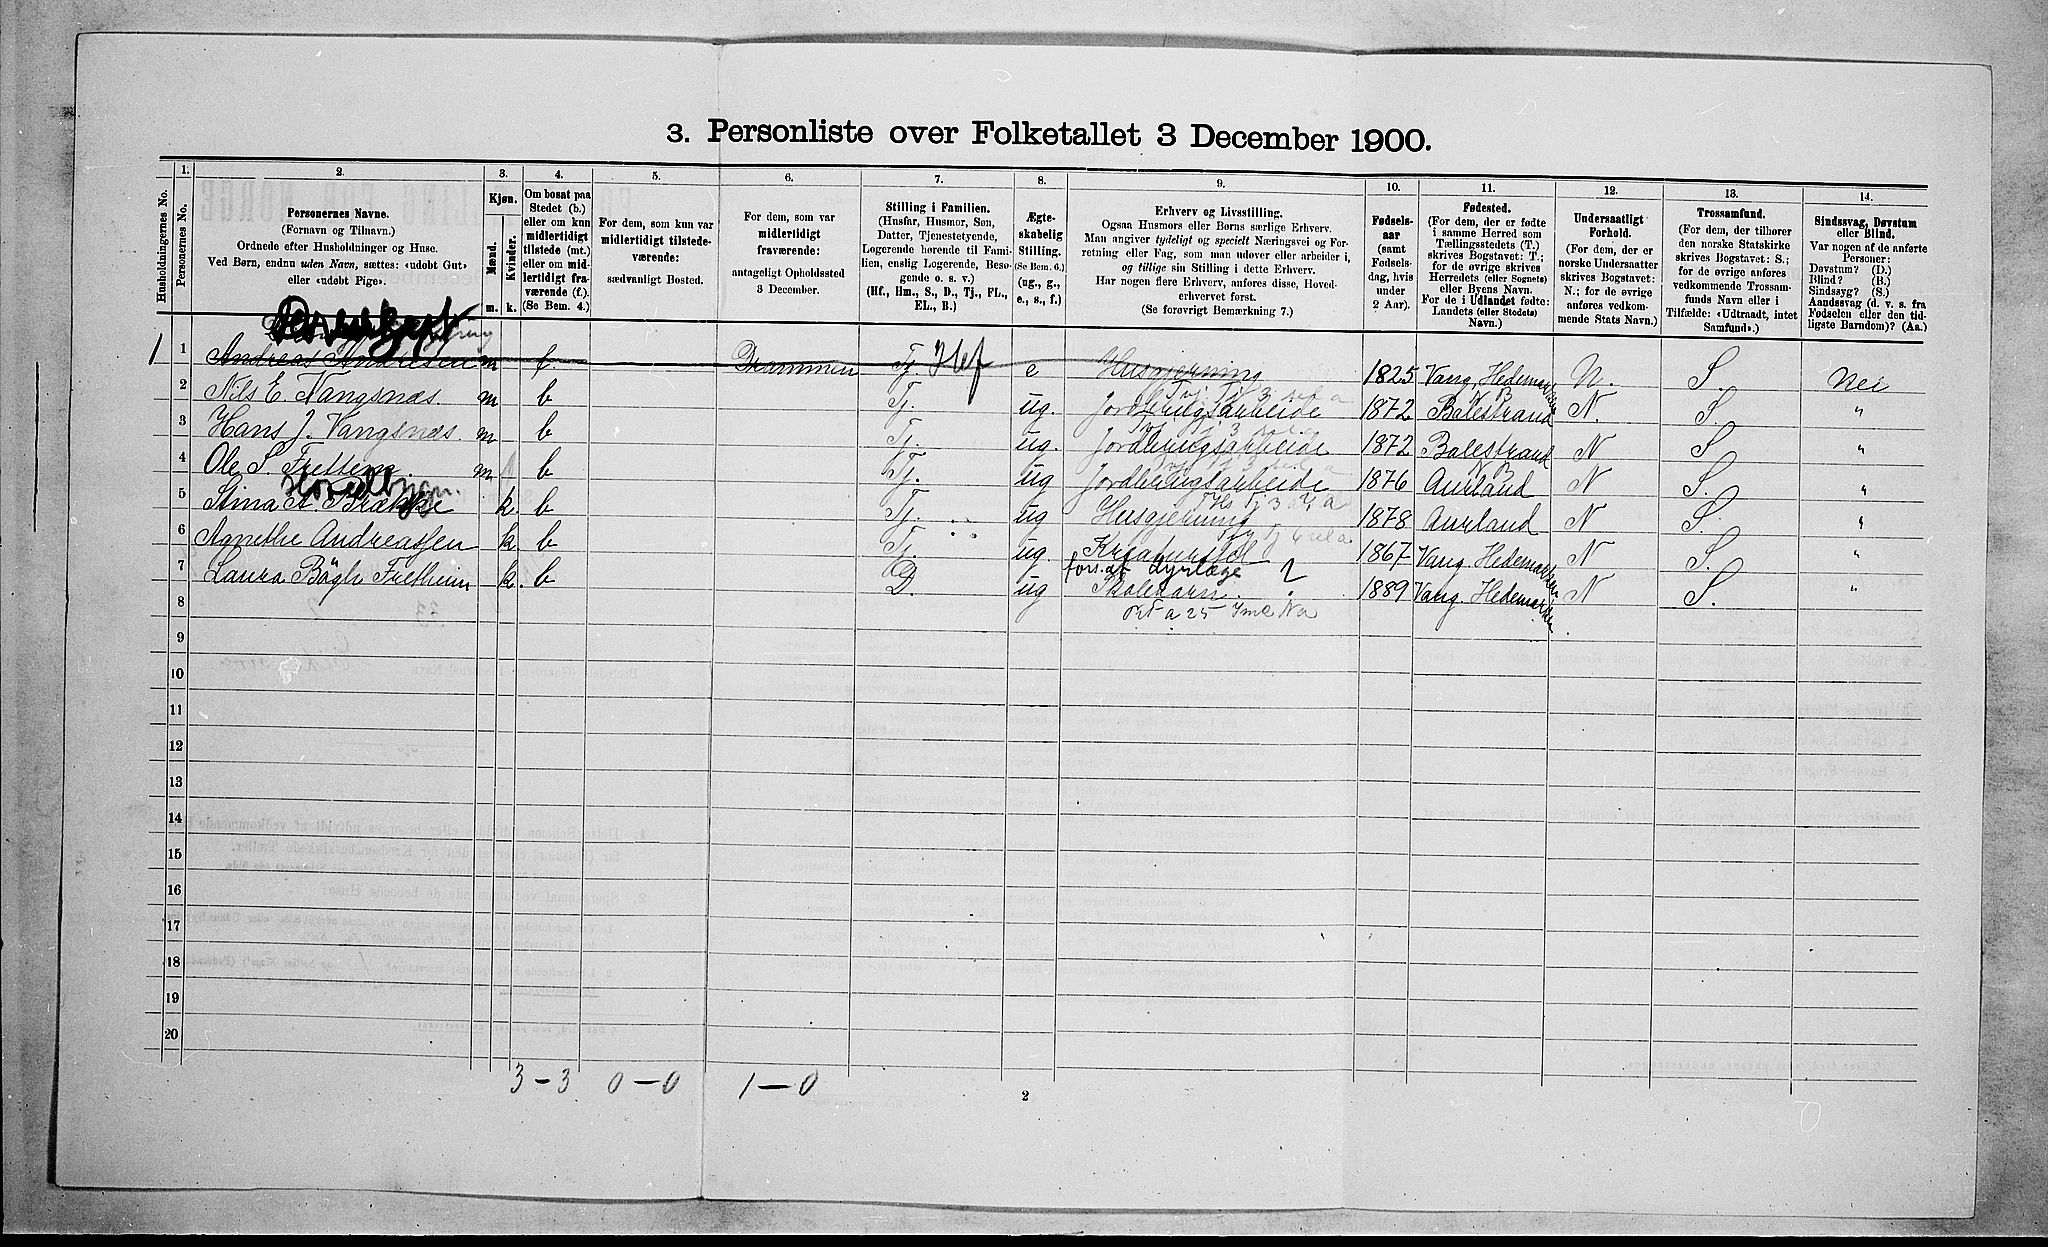 3. Personliste over Folketallet 3 December 1900.
Husholdningernes No.
1.
Personernes No.
2.
Personernes Navne.
(Fornavn og Tilnavn.)
Ordnede efter Husholdninger og Huse.
Ved Børn, endnu uden Navn, sættes: «udøbt Gut»
eller «udøbt Pige».
3.
Kjøn.
Mænd.
Kvinder.
m. k.
4.
Om bosat paa
Stedet (b.)
eller om kun
midlertidigt
tilstede (mt.)
eller om mid-
lertidigt fra-
værende (f.).
(Se Bem. 4.)
5.
For dem, som kun var
midlertidigt tilstede-
værende:
sædvanligt Bosted.
6.
For dem, som var
midlertidigt
fraværende:
antageligt Opholdssted
3 December.
7.
Stilling i Familien.
(Husfar, Husmor, Søn,
Datter, Tjenestetyende,
Logerende hørende til Fami-
lien, enslig Logerende, Besø-
gende o. s. v.)
(Hf., Hm., S., D., Tj., FL.,
EL., B.)
8.
Ægte-
skabelig
Stilling.
(Se Bem. 6.)
(ug., g.,
e., s., f.)
9.
Erhverv og Livsstilling.
Ogsaa Husmors eller Børns særlige Erhverv.
Man angiver tydeligt og specielt Næringsvei og For-
retning eller Fag, som man udøver eller arbeider i,
og tillige sin Stilling i dette Erhverv.
Har nogen flere Erhverv, anføres disse, Hoved-
erhvervet først.
(Se forøvrigt Bemærkning 7.)
10.
Fødsels-
aar
(samt
Fødsels-
dag, hvis
under
2 Aar).
11.
Fødested.
(For dem, der er fødte
i samme Herred som
Tællingsstedets (T.)
skrives Bogstavet: T.;
for de øvrige skrives
Herredets (eller Sognets)
eller Byens Navn.
For de i Udlandet fødte:
Landets (eller Stedets)
Navn.)
12.
Undersaatligt
Forhold.
(For dem, der er
norske Undersaatter
skrives Bogstavet:
N.; for de øvrige
anføres vedkom-
mende Stats Navn.)
13.
Trossamfund.
(For dem, der tilhører
den norske Statskirke
skrives Bogstavet: S.;
for de øvrige anføres
vedkommende Trossam-
funds Navn eller i
Tilfælde: «Udtraadt, intet
Samfund».)
14.
Sindssvag, Døvstum
eller Blind.
Var nogen af de anførte
Personer:
Døvstum? (D.)
Blind? (B.)
Sindssyg? (S.)
Aandssvag (d. v. s. fra
Fødselen eller den tid-
ligste Barndom)? (Aa.)
1 1 Andreas Andresen m f. Drammen Tj. Hf e Husgjerning 1825 Vang, Hedemarken N. S. Nei
2 Nils E. Vangsnæs. m b Tj. ug. Jordbrugsarbeide 1872 Balestrand N. S. "
3 Hans J. Vangsnæs. m b Tj. ug. Jordbrugsarbeide 1872 Balestrand N S "
4 Ole S. Fretheim. m b Tj. ug Jordbrugsarbeide 1876 Aurland N S. "
Hovedbygn.
5 Stina A Brække k b Tj. ug Husgjerning 1878 Aurland N S. "
6 Agnethe Andreassen k. b Tj. ug. Kreaturstel 1867 Vang Hedemarken N S. "
7 Laura Bøgh Fretheim k. b D. ug fors. af Dyrlæge Skolebarn. 1889 Vang. Hedemarken N S.
8
9
10
11
12
13
14
15
16
17
18
19
20
3 – 3 0 – 0 1 – 0
2